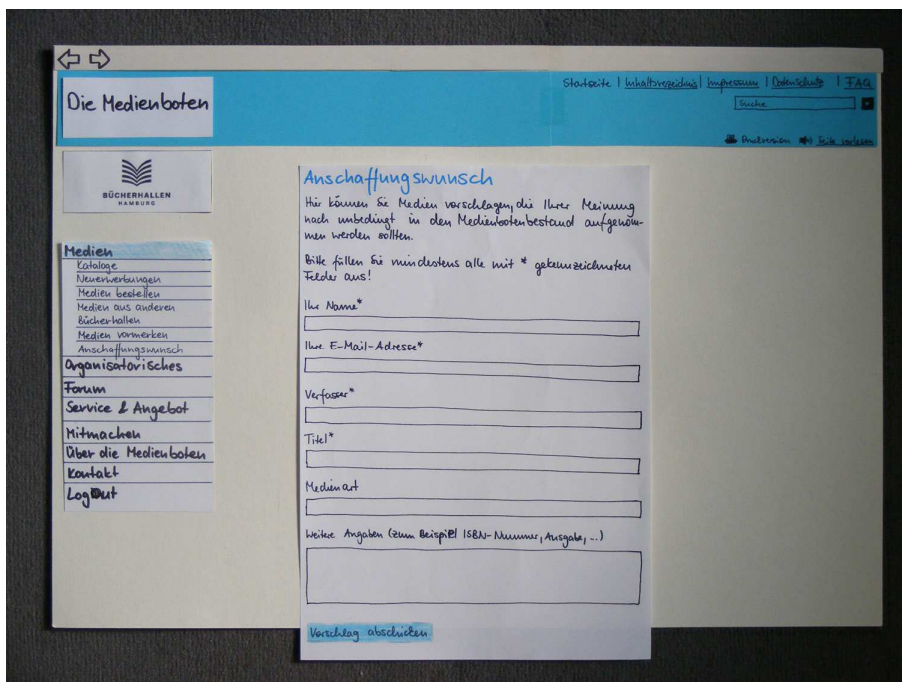 Die Medienboten
Startseite | Inhaltsverzeichnis | Impressum | Datenschutz | FAQ
Suche
Druckversion Seite vorlesen
BÜCHERHALLEN
HAMBURG
Medien
Kataloge
Neuerwerbungen
Medien bestellen
Medien aus anderen
Bücherhallen
Medien vormerken
Anschaffungswunsch
Organisatorisches
Forum
Service & Angebot
Mitmachen
Über die Medienboten
Kontakt
LogOut
Anschaffungswunsch
Hier können Sie Medien vorschlagen, die Ihrer Meinung
nach unbedingt in den Medienbotenbestand aufgenom-
men werden sollten.
Bitte füllen Sie mindestens alle mit * gekennzeichneten
Felder aus!
Ihr Name*
Ihre E-Mail-Adresse*
Verfasser*
Titel*
Medienart
Weitere Angaben (zum Beispiel ISBN-Nummer, Ausgabe, ...)
Vorschlag abschicken